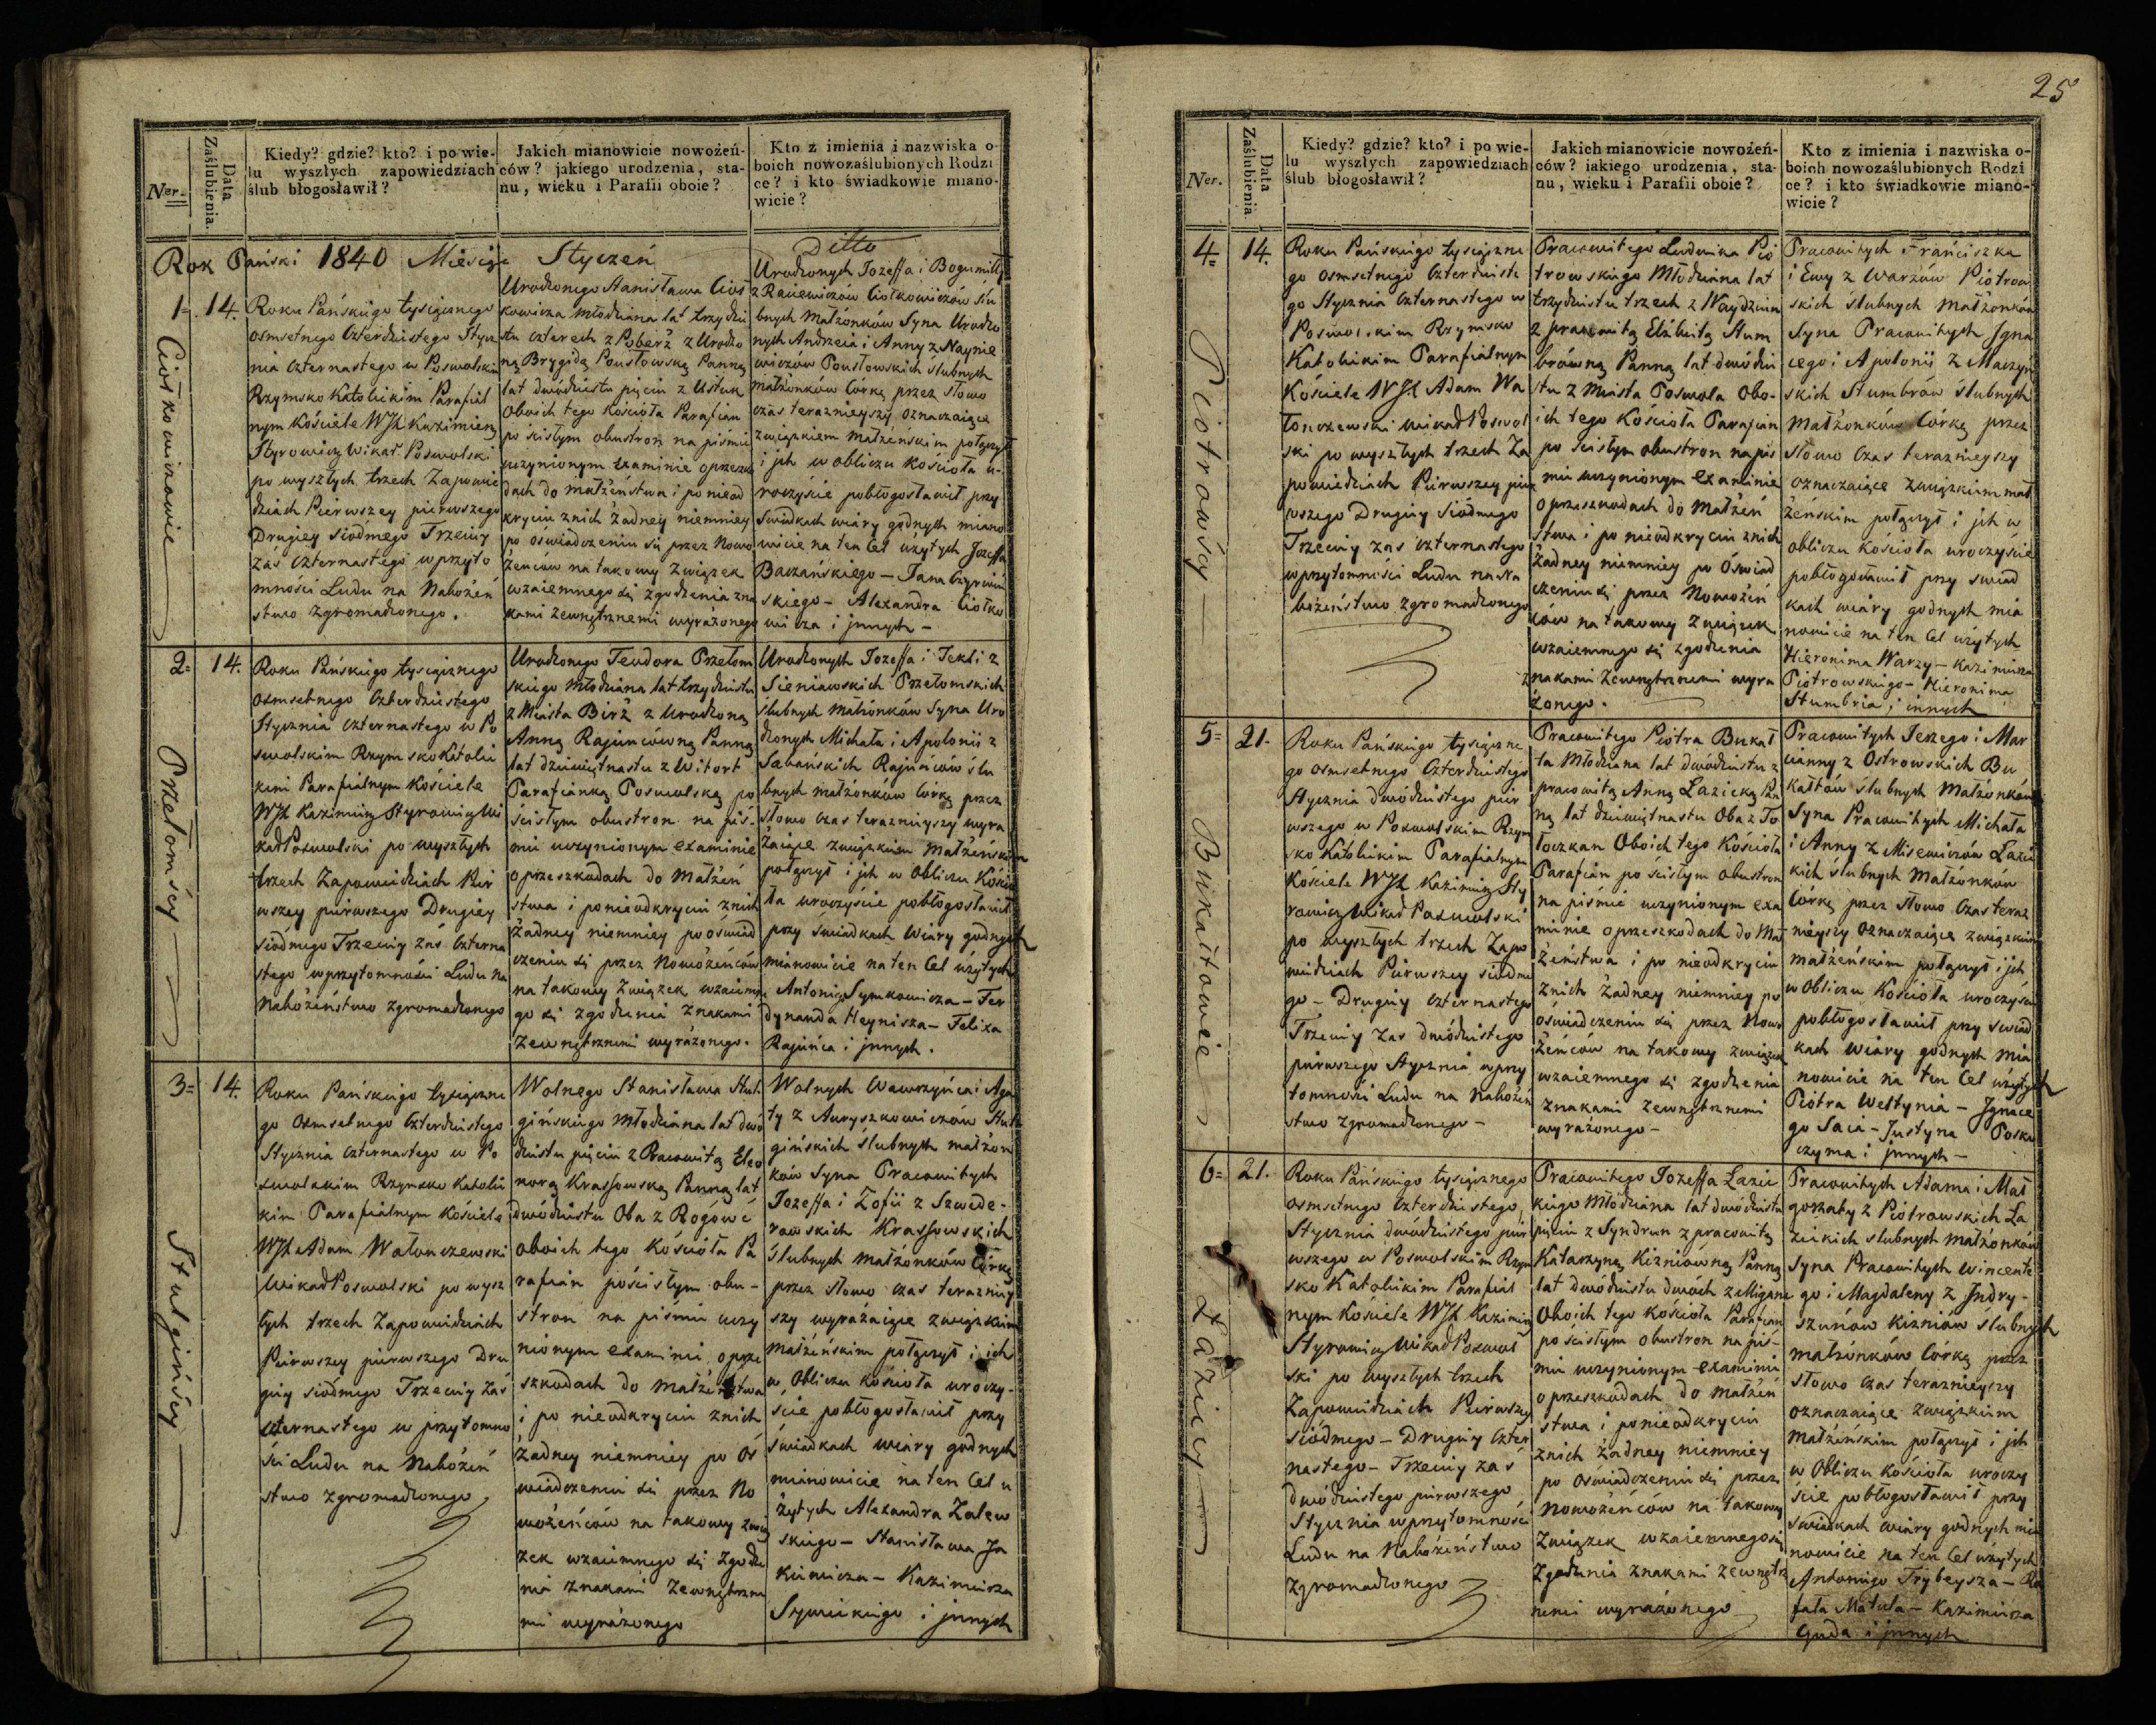 25
Ner.
Data Zaślubienia.
Kiedy? gdzie? kto? i po wie-
lu wyszłych zapowiedziach
ślub błogosławił?
Jakich mianowicie nowożeń-
ców? jakiego urodzenia, sta-
nu, wieku i Parafii oboie?
Kto z imienia i nazwiska o-
boich nowozaślubionych Rodzi
ce? i kto świadkowie miano-
wicie?
Rok Pański 1840 Miesiąc Styczeń Ditto
1. 14.
Ciołkowiczowie
Roku Pańskiego tysiącznego
osmsetnego Czterdziestego Stycz
nia czternastego w Poswolskim
Rzymsko Katolickim Parafial
nym Kościele WJX Kazimierz
Styrowicz Wikar. Poswolski
po wyszłych trzech Zapowie
dziach Pierwszey pierwszego
Drugiey siódmego Trzeciey
zaś czternastego w przyto
mności Ludu na Nabożeń
stwo zgromadzonego.
Urodzonego Stanisława Cioł
kowicza młodziana lat trzydzie
stu czterech z Poberż z Urodzo
ną Brygidą Poustowską Panną
lat dwudziestu pięciu z Ustuk
Oboich tego Kościoła Parafian
po ścisłym obustron na piśmie
uczynionym examinie o przeszko
dach do małżeństwa i po nieod
kryciu znich żadney niemniey
po oświadczeniu się przez Nowo
żeńców na takowy Związek
wzaiemnego się zgodzenia zna
kami zewnętrznemi wyrażonego
Urodzonych Jozeffa i Bogumiłły
z Raciewiczów Ciołkowiczów ślu
bnych Małżonków Syna Urodzo
nych Andrzeia i Anny z Naynie
wiczów Poustowskich ślubnych
małżonków Córkę przez słowo
czas teraznieyszy oznaczaiące
związkiem małżeńskim połączył
i jch w obliczu Kościoła u-
roczyście pobłogosławił przy
Świadkach wiary godnych miano
wicie na ten Cel użytych Jozeffa
Baczańskiego — Jana
skiego — Alexandra Ciołko
wicza i jnnych —
2. 14.
Przełomścy
Roku Pańskiego tysiącznego
osmsetnego Czterdziestego
Stycznia czternastego w Po
swolskim Rzymsko Katolic
kim Parafialnym Kościele
WJX Kazimierz Styrowicz Wi
kar Poswolski po wyszłych
trzech Zapowiedziach Pier
wszey pierwszego Drugiey
siódmego Trzeciey zaś czterna
stego w przytomności Ludu na
Nabożeństwo zgromadzonego
Urodzonego Teodora Przełom
skiego młodziana lat trzydziestu
z Miasta Birż z Urodzoną
Anną Rajuncówną Panną
lat dziewiętnastu z Witort
Parafianką Poswolską po
ścisłym obustron na piś-
mie uczynionym examinie
o przeszkodach do Małżeń
stwa i po nieodkryciu znich
żadney niemniey po oświad
czeniu się przez Nowożeńców
na takowy Związek wzaiemne
go się zgodzenia znakami
zewnętrznemi wyrażonego.
Urodzonych Jozeffa i Tekli z
Sieniawskich Przełomskich
ślubnych małżonków Syna Uro
dzonych Michała i Apolonii z
Sabańskich Rajuńców ślu
bnych małżonków Córkę przez
słowo czas teraznieyszy wyra
żaiące związkiem Małżeńskim
połączył i jch w Obliczu Kościo
ła uroczyście pobłogosławił
przy świadkach Wiary godnych
mianowicie na ten Cel użytych
Antoniego Symkowicza — Fer
dynanda Heynisza — Felixa
Rajuńca i jnnych.
3. 14.
Stulgińścy
Roku Pańskiego tysiączne
go Osmsetnego Czterdziestego
Stycznia czternastego w Po
swolskim Rzymsko Katolic
kim Parafialnym Kościele
WJX Adam Wołonczewski
Wikar Poswolski po wysz
łych trzech Zapowiedziach
Pierwszey pierwszego Dru
giey siódmego Trzeciey zaś
czternastego w przytomno
ści Ludu na Nabożeń
stwo zgromadzonego
Wolnego Stanisława Stul
gińskiego młodziana lat dwó
dziestu pięciu z Pracowitą Eleo
norą Krassowską Panną lat
dwódziestu Oba z Rogówé
oboich tego Kościoła Pa
rafian pościsłym obu-
stron na piśmie uczy
nionym examinie o prze
szkodach do małżeństwa
i po nieodkryciu znich
żadney niemniey po Oś
wiadczeniu się przez No
wożeńców na takowy zwią
zek wzaiemnego się zgodze
nia znakami zewnętrzne
mi wyrażonego
Wolnych Wawrzyńca i Aga
ty z Auryszkowiczów Stul
gińskich ślubnych małżon
ków Syna Pracowitych
Jozeffa i Zofii z Szwede-
rowskich Krassowskich
ślubnych małżonków Córkę
przez słowo czas terazniey
szy wyrażaiące związkiem
małżeńskim połączył i ich
w Obliczu Kościoła uroczy-
ście pobłogosławił przy
świadkach wiary godnych
mianowicie na ten Cel u
żytych Alexandra Zalew
skiego — Stanisława Ja
kiewicza — Kazimierza
i jnnych
Ner.
Data Zaślubienia
Kiedy? gdzie? kto? i po wie-
lu wyszłych zapowiedziach
ślub błogosławił?
Jakich mianowicie nowożeń-
ców? iakiego urodzenia, sta-
nu, wieku i Parafii oboie?
Kto z imienia i nazwiska o-
boich nowozaślubionych Rodzi
ce? i kto świadkowie miano-
wicie?
4. 14.
Piotrowścy
Roku Pańskiego tysiączne
go osmsetnego Czterdzieste
go Stycznia Czternastego w
Poswolskim Rzymsko
Katolickim Parafialnym
Kościele WJX Adam Wa
łonczewski Wikar Poswol
ski po wyszłych trzech Za
powiedziach Pierwszey pier
wszego Drugiey Siódmego
Trzeciey zas czternastego
w przytomności Ludu na Na
bożeństwo zgromadzonego
Pracowitego Ludwika Pio
trowskiego Młodziana lat
trzydziestu trzech z Naydziun
z pracowitą Elżbietą Stum
brówną Panną lat dwódzie
stu z Miasta Poswola Obo-
ich tego Kościoła Parafian
po ścisłym obustron na piś
mie uczynionym examinie
o przeszkodach do Małżeń
stwa i po nieodkryciu znich
żadney niemniey po Oświad
czeniu się przez Nowożeń
ców na takowy związek
wzaiemnego się zgodzenia
znakami zewnętrznemi wyra
żonego.
Pracowitych Franciszka
i Ewy z Warżów Piotrow
skich ślubnych małżonków
Syna Pracowitych Igna
cego i Apolonii z Maczyń
skich Stumbrów ślubnych
Małżonków Córkę przez
słowo Czas teraznieyszy
oznaczaiące związkiem mał
żeńskim połączył i jch w
obliczu Kościoła uroczyście
pobłogosławił przy świad
kach wiary godnych mia
nowicie na ten Cel użytych
Hieronima Warzy — Kazimierza
Piotrowskiego — Hieronima
Stumbria, i innych
5. 21.
Bukałtowie
Roku Pańskiego tysiączne
go osmsetnego Czterdziestego
Stycznia dwódziestego pier
wszego w Poswolskim Rzym
sko Katolickim Parafialnym
Kościele WJX Kazimierz Sty
rowicz Wikar Poswolski
po wyszłych trzech Zapo
wiedziach Pierwszey siódme
go — Drugiey czternastego
Trzeciey zas dwódziestego
pierwszego Stycznia w przy
tomności Ludu na Nabożeń
stwo zgromadzonego —
Pracowitego Piotra Bukał
ta Młodziana lat dwodziestu z
pracowitą Anną Łazicką Pan
ną lat dziewiętnastu Oba z To
łoczkan Oboich tego Kościoła
Parafian po ścisłym obustron
na piśmie uczynionym exa
minie o przeszkodach do Mał
żeństwa i po nieodkryciu
znich żadney niemniey po
oświadczeniu się przez Nowo
żeńców na takowy związek
wzaiemnego się zgodzenia
znakami zewnętrznemi
wyrażonego —
Pracowitych Jerzego i Mar
cianny z Ostrowskich Bu
kałtów ślubnych Małżonków
Syna Pracowitych Michała
i Anny z Misewiczów Łazic
kich ślubnych Małżonków
Córkę przez słowo Czas teraz
nieyszy oznaczaiące związkiem
małżeńskim połączył i jch
w Obliczu Kościoła uroczyście
pobłogosławił przy świad
kach wiary godnych mia
nowicie na ten Cel użytych
Piotra Westynia — Ignace
go Saca — Justyna Posku
czyma i jnnych —
6. 21.
Łaziccy
Roku Pańskiego tysiącznego
osmsetnego Czterdziestego
Stycznia dwódziestego pier
wszego w Poswolskim Rzym
sko Katolickim Parafial
nym Kościele WJX Kazimierz
Styrowicz Wikar Poswol
ski po wyszłych trzech
Zapowiedziach Pierwszey
siódmego — Drugiey czter
nastego — Trzeciey zaś
dwódziestego pierwszego
Stycznia w przytomności
Ludu na Nabożeństwo
zgromadzonego
Pracowitego Jozeffa Łazic
kiego Młodziana lat dwódziestu
pięciu z Syndrun z pracowitą
Katarzyną Kizniówną Panną
lat dwódziestu dwóch z Migane
Oboich tego Kościoła Parafian
po ścisłym obustron na piś-
mie uczynionym examinie
o przeszkodach do Małżeń
stwa i po nieodkryciu
znich żadney niemniey
po oświadczeniu się przez
Nowożeńców na takowy
Związek wzaiemnego się
zgodzenia znakami zewnętrz
nemi wyrażonego
Pracowitych Adama i Mał
gorzaty z Piotrowskich Ła
zickich ślubnych małżonków
Syna Pracowitych Wincente
go i Magdaleny z Indry-
szunów Kizniów ślubnych
małżonków Córkę przez
słowo czas teraznieyszy
oznaczaiące związkiem
Małżeńskim połączył i jch
w Obliczu Kościoła uroczy
ście pobłogosławił przy
świadkach wiary godnych mia
nowicie na ten Cel użytych
Antoniego Trybeysza — Ra
fała Matula — Kazimierza
Guda i jnnych